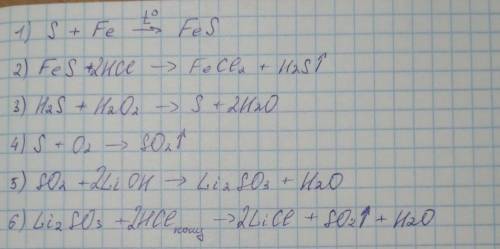 1) S + Fe t°→ FeS
2) FeS + 2HCl → FeCl₂ + H₂S↑
3) H₂S + H₂O₂ → S + 2H₂O
4) S + O₂ → SO₂↑
5) SO₂ + 2LiOH → Li₂SO₃ + H₂O
6) Li₂SO₃ + 2HCl конц → 2LiCl + SO₂↑ + H₂O